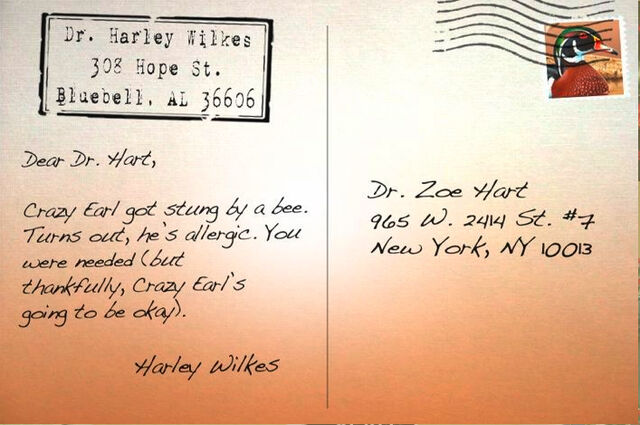 Dr. Harley Wilkes
308 Hope St.
Bluebell, AL 36606
Dear Dr. Hart,
Crazy Earl got stung by a bee.
Turns out, he's allergic. You
were needed (but
thankfully, Crazy Earl's
going to be okay).
Harley Wilkes
Dr. Zoe Hart
965 W. 2414 St. #7
New York, NY 10013